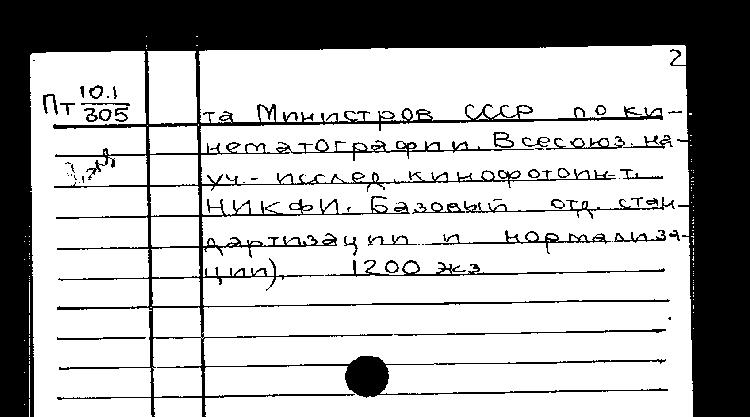 2
Пт 10.1
305
та Министров СССР по ки-
нематографии. Всесоюз. на-
уч-исслед. кинофотоин-т.
НИКФИ. Базовый отд. стан-
дартизации и нормализа-
ции). 1200 экз